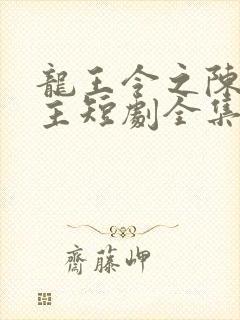 龍王令之陳
王短劇全集
齋藤岬